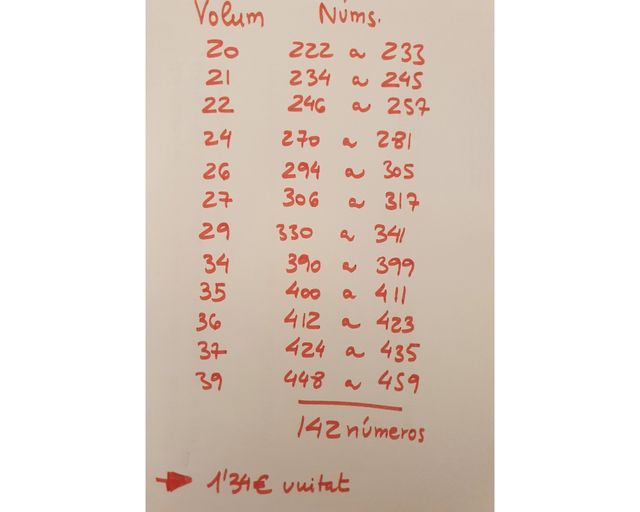 Volum Núms.
20 222 a 233
21 234 a 245
22 246 a 257
24 270 a 281
26 294 a 305
27 306 a 317
29 330 a 341
34 390 a 399
35 400 a 411
36 412 a 423
37 424 a 435
39 448 a 459
142 números
1'34€ unitat